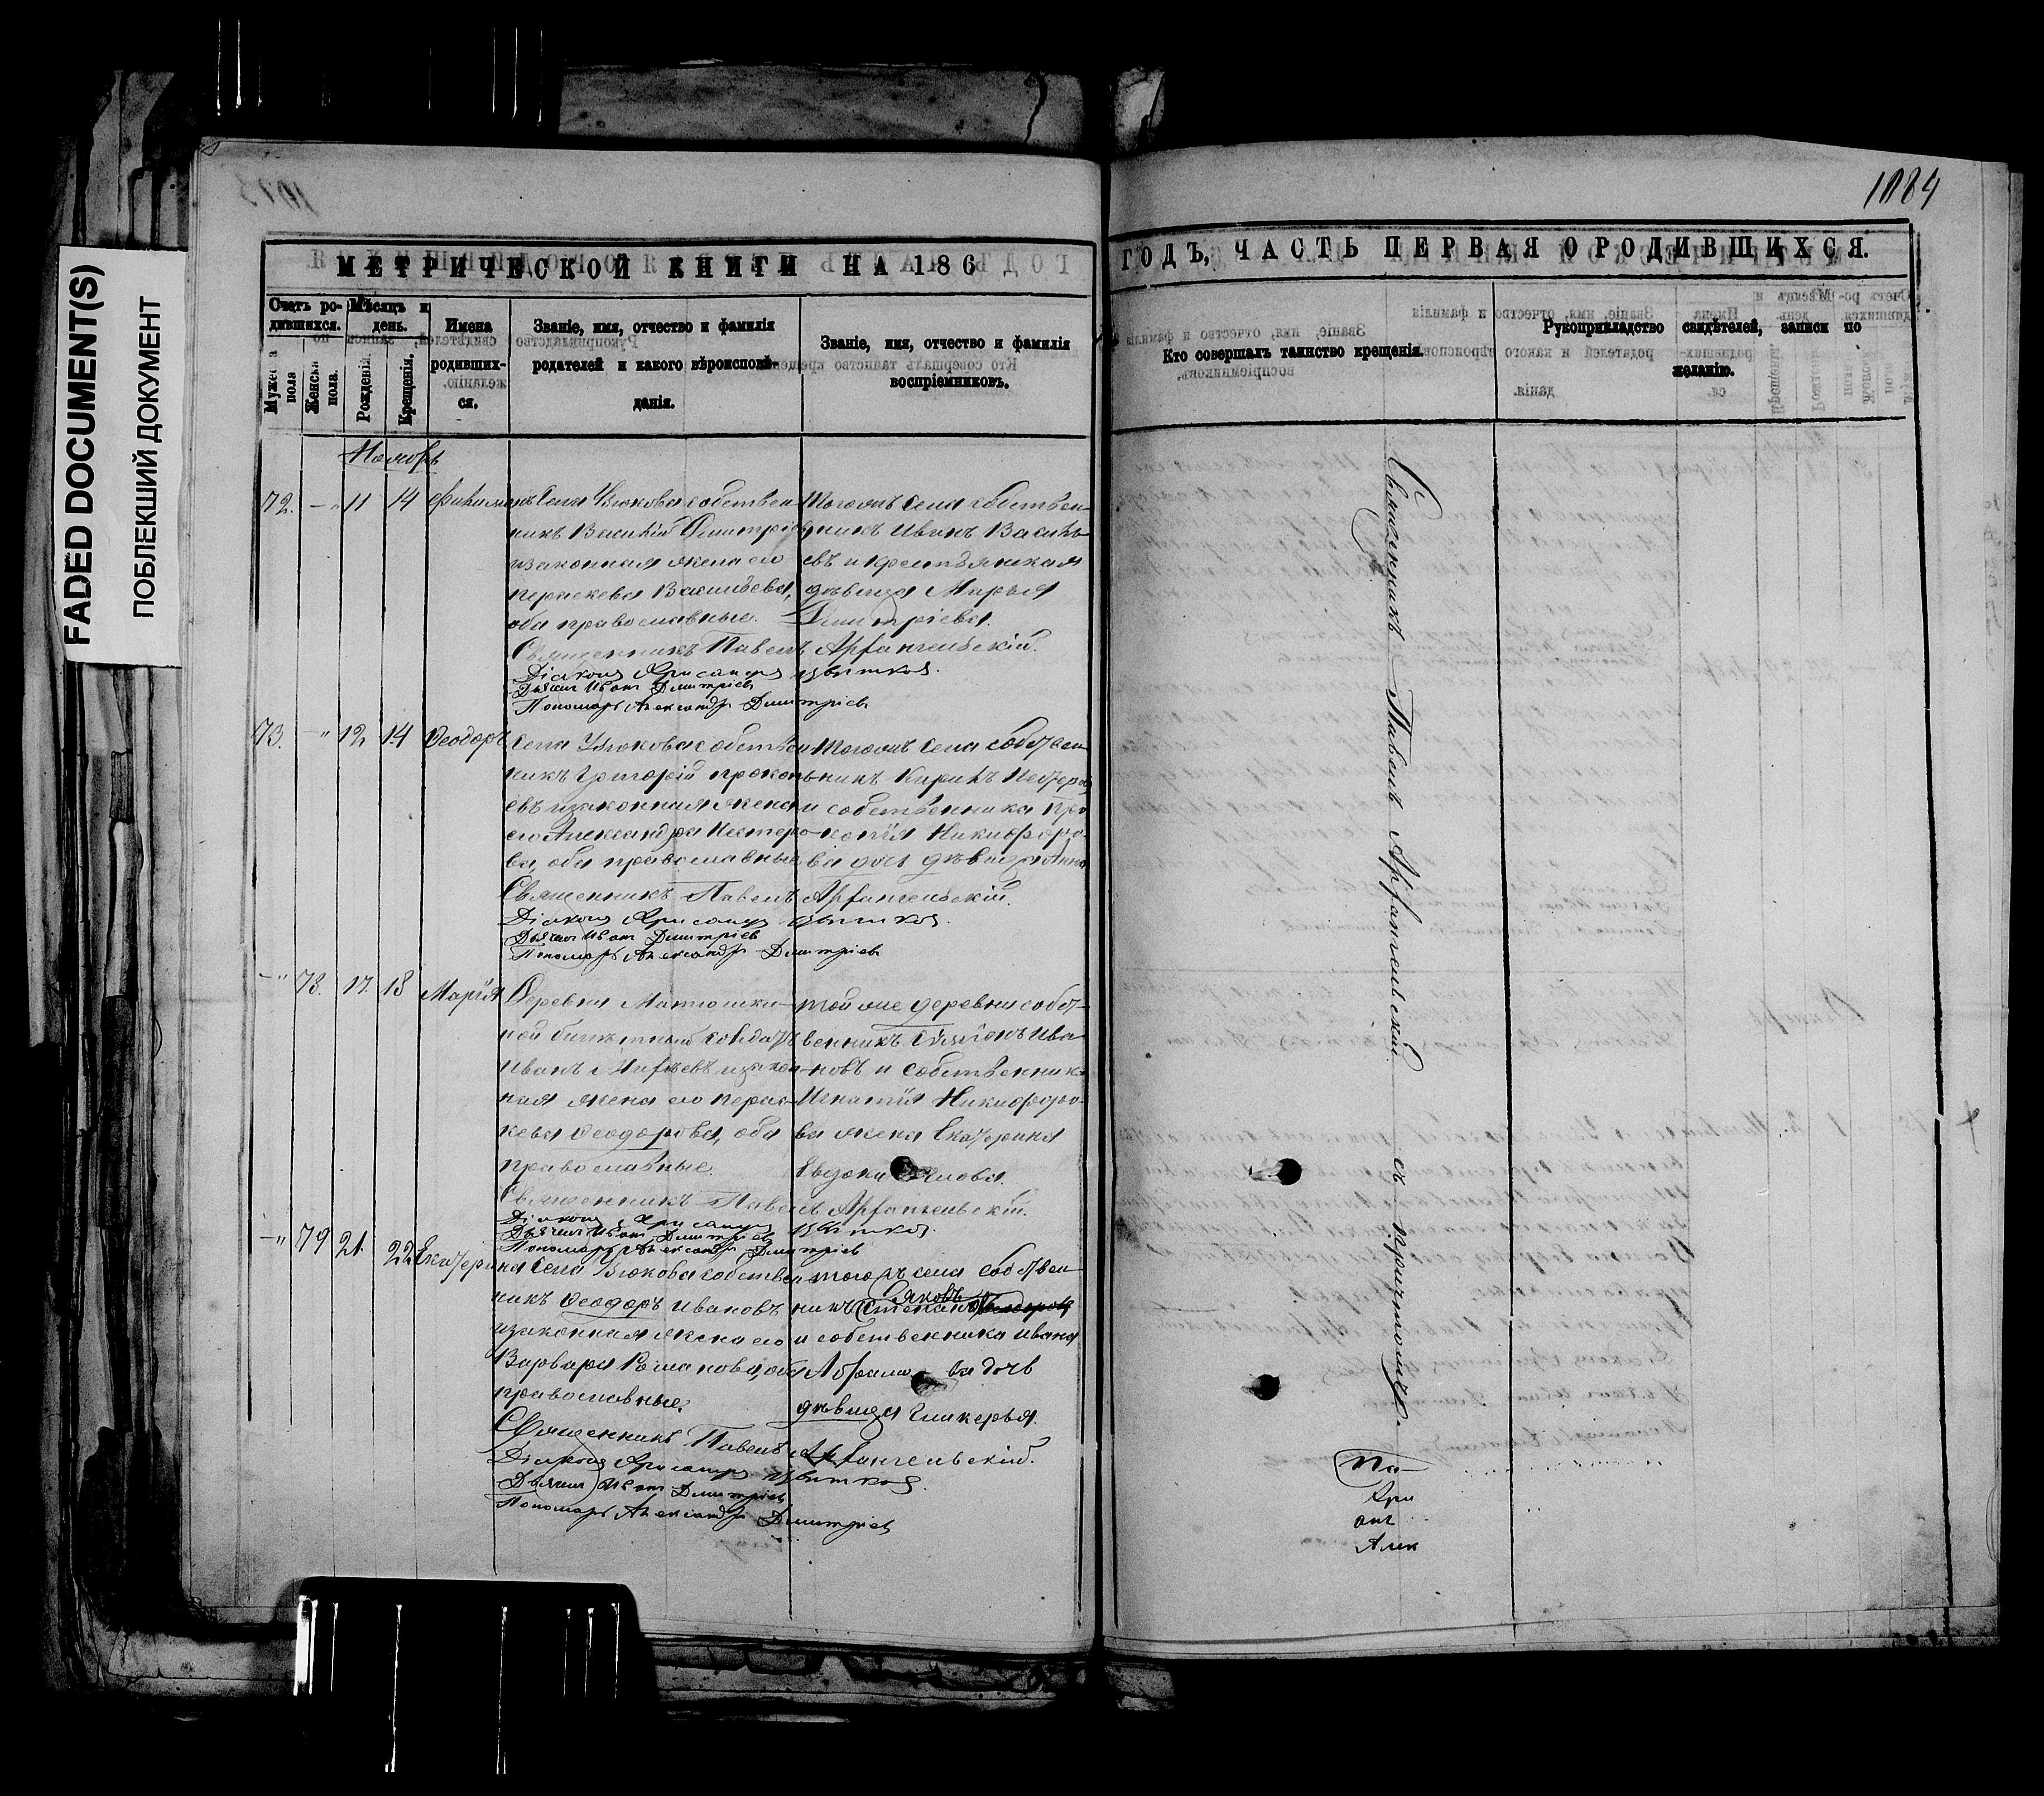 FADED DOCUMENT(S)
ПОБЛЕКШИЙ ДОКУМЕНТ
1884
МЕТРИЧЕСКОЙ КНИГИ НА 186
ГОДЪ, ЧАСТЬ ПЕРВАЯ О РОДИВШИХСЯ.
Счетъ ро-
дившихся.
Мужеска
пола
Женска
пола.
Мѣсяцъ и
день.
Рожденія
Крещенія.
Имена
родивших-
ся.
Званіе, имя, отчество и фамилія
родателей и какого вѣроисповѣ-
данія.
Званіе, имя, отчество и фамилія
воспріемниковъ.
Кто совершалъ таинство крещенія.
Рукоприкладство свидѣтелей, записи по
желанію.
Ноябрь
72. — 11 14
собствен-
никъ Василій Димитріевъ
и законная жена его
Параскева Васильева,
оба православные.
Тогожъ села собствен-
никъ Иванъ Василь-
евъ и крестьянская
дѣвица Марья
Дмитріева.
Священникъ Павелъ Архангельскій.
Діаконъ
Дьячекъ Иванъ Дмитріевъ
Пономарь Александръ Дмитріевъ
73. — 12 14 Ѳеодоръ
никъ Григорій Прокопь-
евъ и законная жена
его Александра Нестеро-
ва, оба православные
Тогожъ села собствен-
никъ Кирилъ Несторовъ
и собственника Про-
копія Никифоро-
ва дочь дѣвица Анна
Священникъ Павелъ Архангельскій.
Діаконъ
Дьячекъ Иванъ Дмитріевъ
Пономарь Александръ Дмитріевъ
— 78. 17. 18 Марія
Деревни Матюшки-
ной билетный солдатъ
Иванъ Михѣевъ и закон-
ная жена его Парас-
кева Ѳеодорова, оба
православные.
той же деревни собст-
венникъ Ива-
новъ и собственника
Игнатія Никифоро-
ва жена Екатерина
Евдокимова.
Священникъ Павелъ Архангельскій.
Діаконъ
Дьячекъ Иванъ Дмитріевъ
Пономарь Александръ Дмитріевъ
— 79 21. 22 Екатери-
на
никъ Ѳеодоръ Ивановъ
и законная жена его
Варвара Романова, оба
православные.
тогожъ села собствен-
никъ Степанъ Яковъ
и собственника Ивана
дочь
дѣвица Гликерья.
Священникъ Павелъ Архангельскій.
Діаконъ
Дьячекъ Иванъ Дмитріевъ
Пономарь Александръ Дмитріевъ
Священникъ Павелъ Архангельскій съ причтомъ.
Па-
Хри
Алек